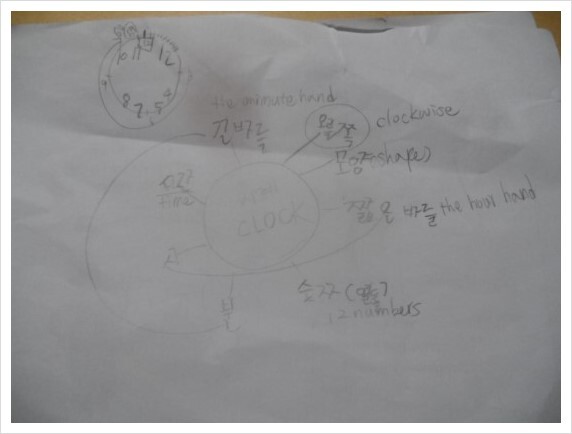 10 11 12
8 7 5 4
the minute hand
긴 바늘
왼쪽 clockwise
모양(shape)
시간
time
CLOCK
짧은 바늘 the hour hand
시
분
숫자
12 numbers